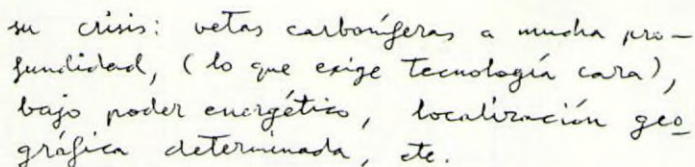 su crisis: vetas carboníferas a mucha pro-
fundidad, (lo que exige Tecnología cara),
bajo poder energético, localización geo
gráfica determinada, etc.